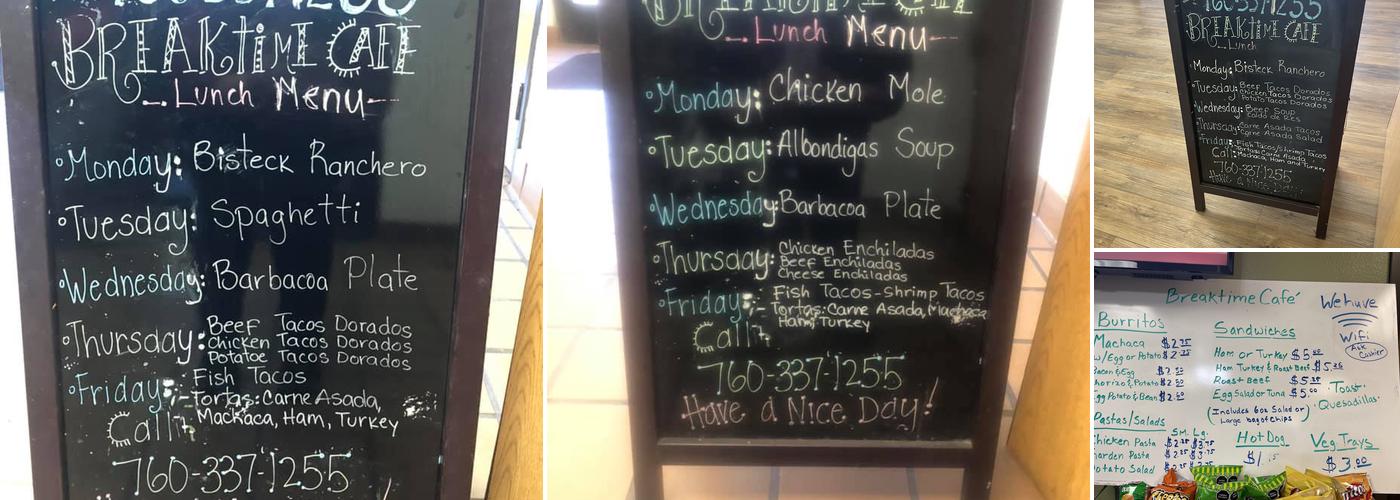 BREAKTIME CAFE
Lunch Menu
Monday: Bisteck Ranchero
Tuesday: Spaghetti
Wednesday: Barbacoa Plate
Thursday: Beef Tacos Dorados
chicken Tacos Dorados
Potatoe Tacos Dorados
Friday: Fish Tacos
Tortas: Carne Asada,
Machaca, Ham, Turkey
Call:
760-337-1255
BREAKTIME CAFE
Lunch Menu
Monday: Chicken Mole
Tuesday: Albondigas Soup
Wednesday: Barbacoa Plate
Thursday: Chicken Enchiladas
Beef Enchiladas
Cheese Enchiladas
Friday: Fish Tacos - Shrimp Tacos
Tortas: Carne Asada, Machaca
Ham, Turkey
Call:
760-337-1255
Have a Nice Day!
760-337-1255
BREAKTIME CAFE
Lunch
Monday: Bisteck Ranchero
Tuesday: Beef Tacos Dorados
Chicken Tacos Dorados
Potato Tacos Dorados
Wednesday: Beef Soup
Caldo de Res
Thursday: Carne Asada Tacos
Carne Asada Salad
Friday: Fish Tacos/Shrimp Tacos
Tortas: Carne Asada
Call: Machaca, Ham and Turkey
760-337-1255
Have a Nice Day
Breaktime Café
We have
WiFi
Ask
Cashier
Burritos
Machaca
w/Egg or Potato
Bacon & Egg
Chorizo & Potato
Egg Potato & Bean
Sandwiches
Ham or Turkey
Ham Turkey & Roast Beef
Roast Beef
Egg Salad or Tuna
(Includes 6oz Salad or
Large bag of Chips)
Toast
Quesadillas
Pastas/Salads
Sm. Lg.
Chicken Pasta
Garden Pasta
Potato Salad
Hot Dog
Veg Trays
$3.00